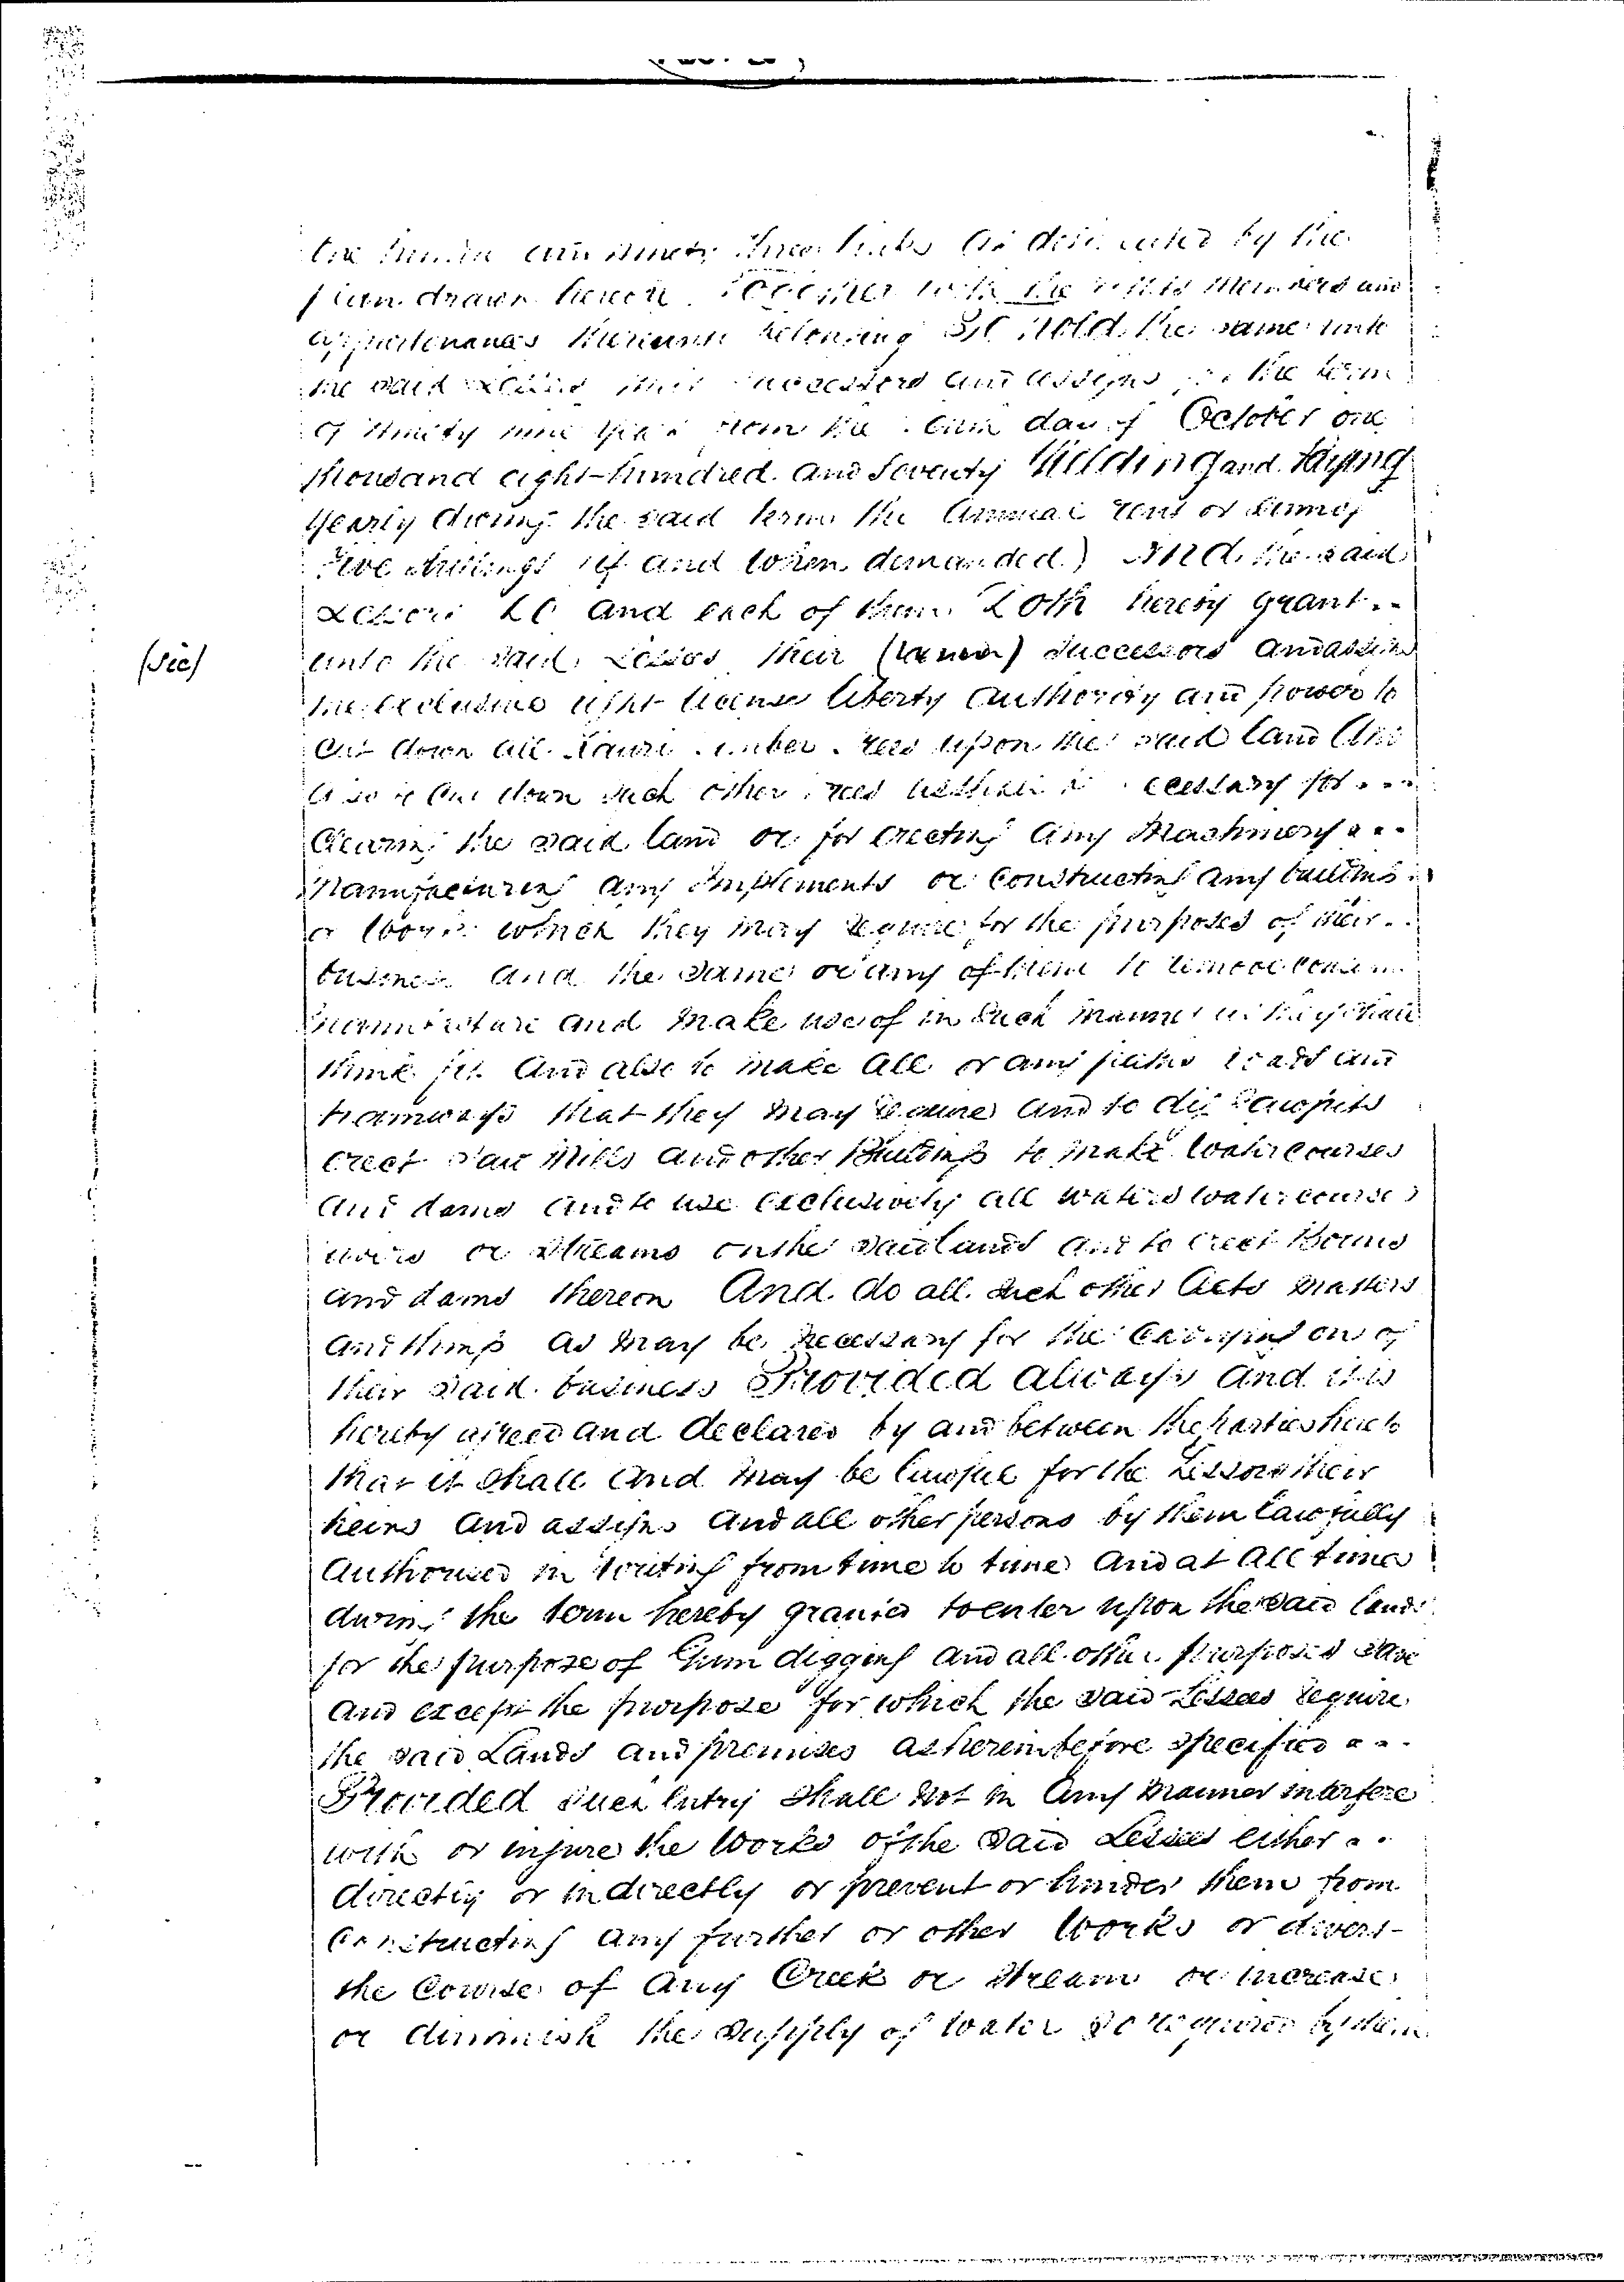 hundred and ninety three links as delineated by the
plan drawn hereon Together with the rights members and
appurtenances thereunto belonging To Hold the same unto
the said Lessees their successors and assigns for the term
of ninety nine years from the day of October one
thousand eight-hundred and seventy Yielding and Paying
yearly during the said term the annual rent or sum of
Five shillings (if and when demanded) And the said
Lessors Do and each of them Doth hereby grant..
(sic) unto the said Lessos their () successors and assigns
the exclusive right license liberty authority and power to
cut down all Kauri timber trees upon the said land And
also to cut down such other trees as shall be necessary for ...
clearing the said land or for erecting any Machinery ...
Manufacturing any Implements or constructing any buildings
or works which they may require for the purposes of their ..
business and the same or any of them to remove
manufacture and make use of in such manner as they shall
think fit And also to make all or any paths roads and
tramways that they may require and to dig Sawpits
erect Saw Mills and other Buildings to make watercourses
and dams and to use exclusively all waters watercourses
rivers or streams on the said lands and to erect Booms
and dams thereon And do all such other Acts matters
and things as may be necessary for the carrying on of
their said business Provided always and it is
hereby agreed and declared by and between the parties hereto
that it shall and may be lawful for the Lessors their
heirs and assigns and all other persons by them lawfully
authorised in writing from time to time and at all times
during the term hereby granted to enter upon the said lands
for the purpose of Gum digging and all other purposes save
and except the purpose for which the said Lessees require
the said Lands and premises as hereinbefore specified ...
Provided such entry shall not in any manner interfere
with or injure the works of the said Lessees either ..
directly or indirectly or prevent or hinder them from
constructing any further or other works or divert-
the course of any Creek or stream or increase
or diminish the supply of water so required by them